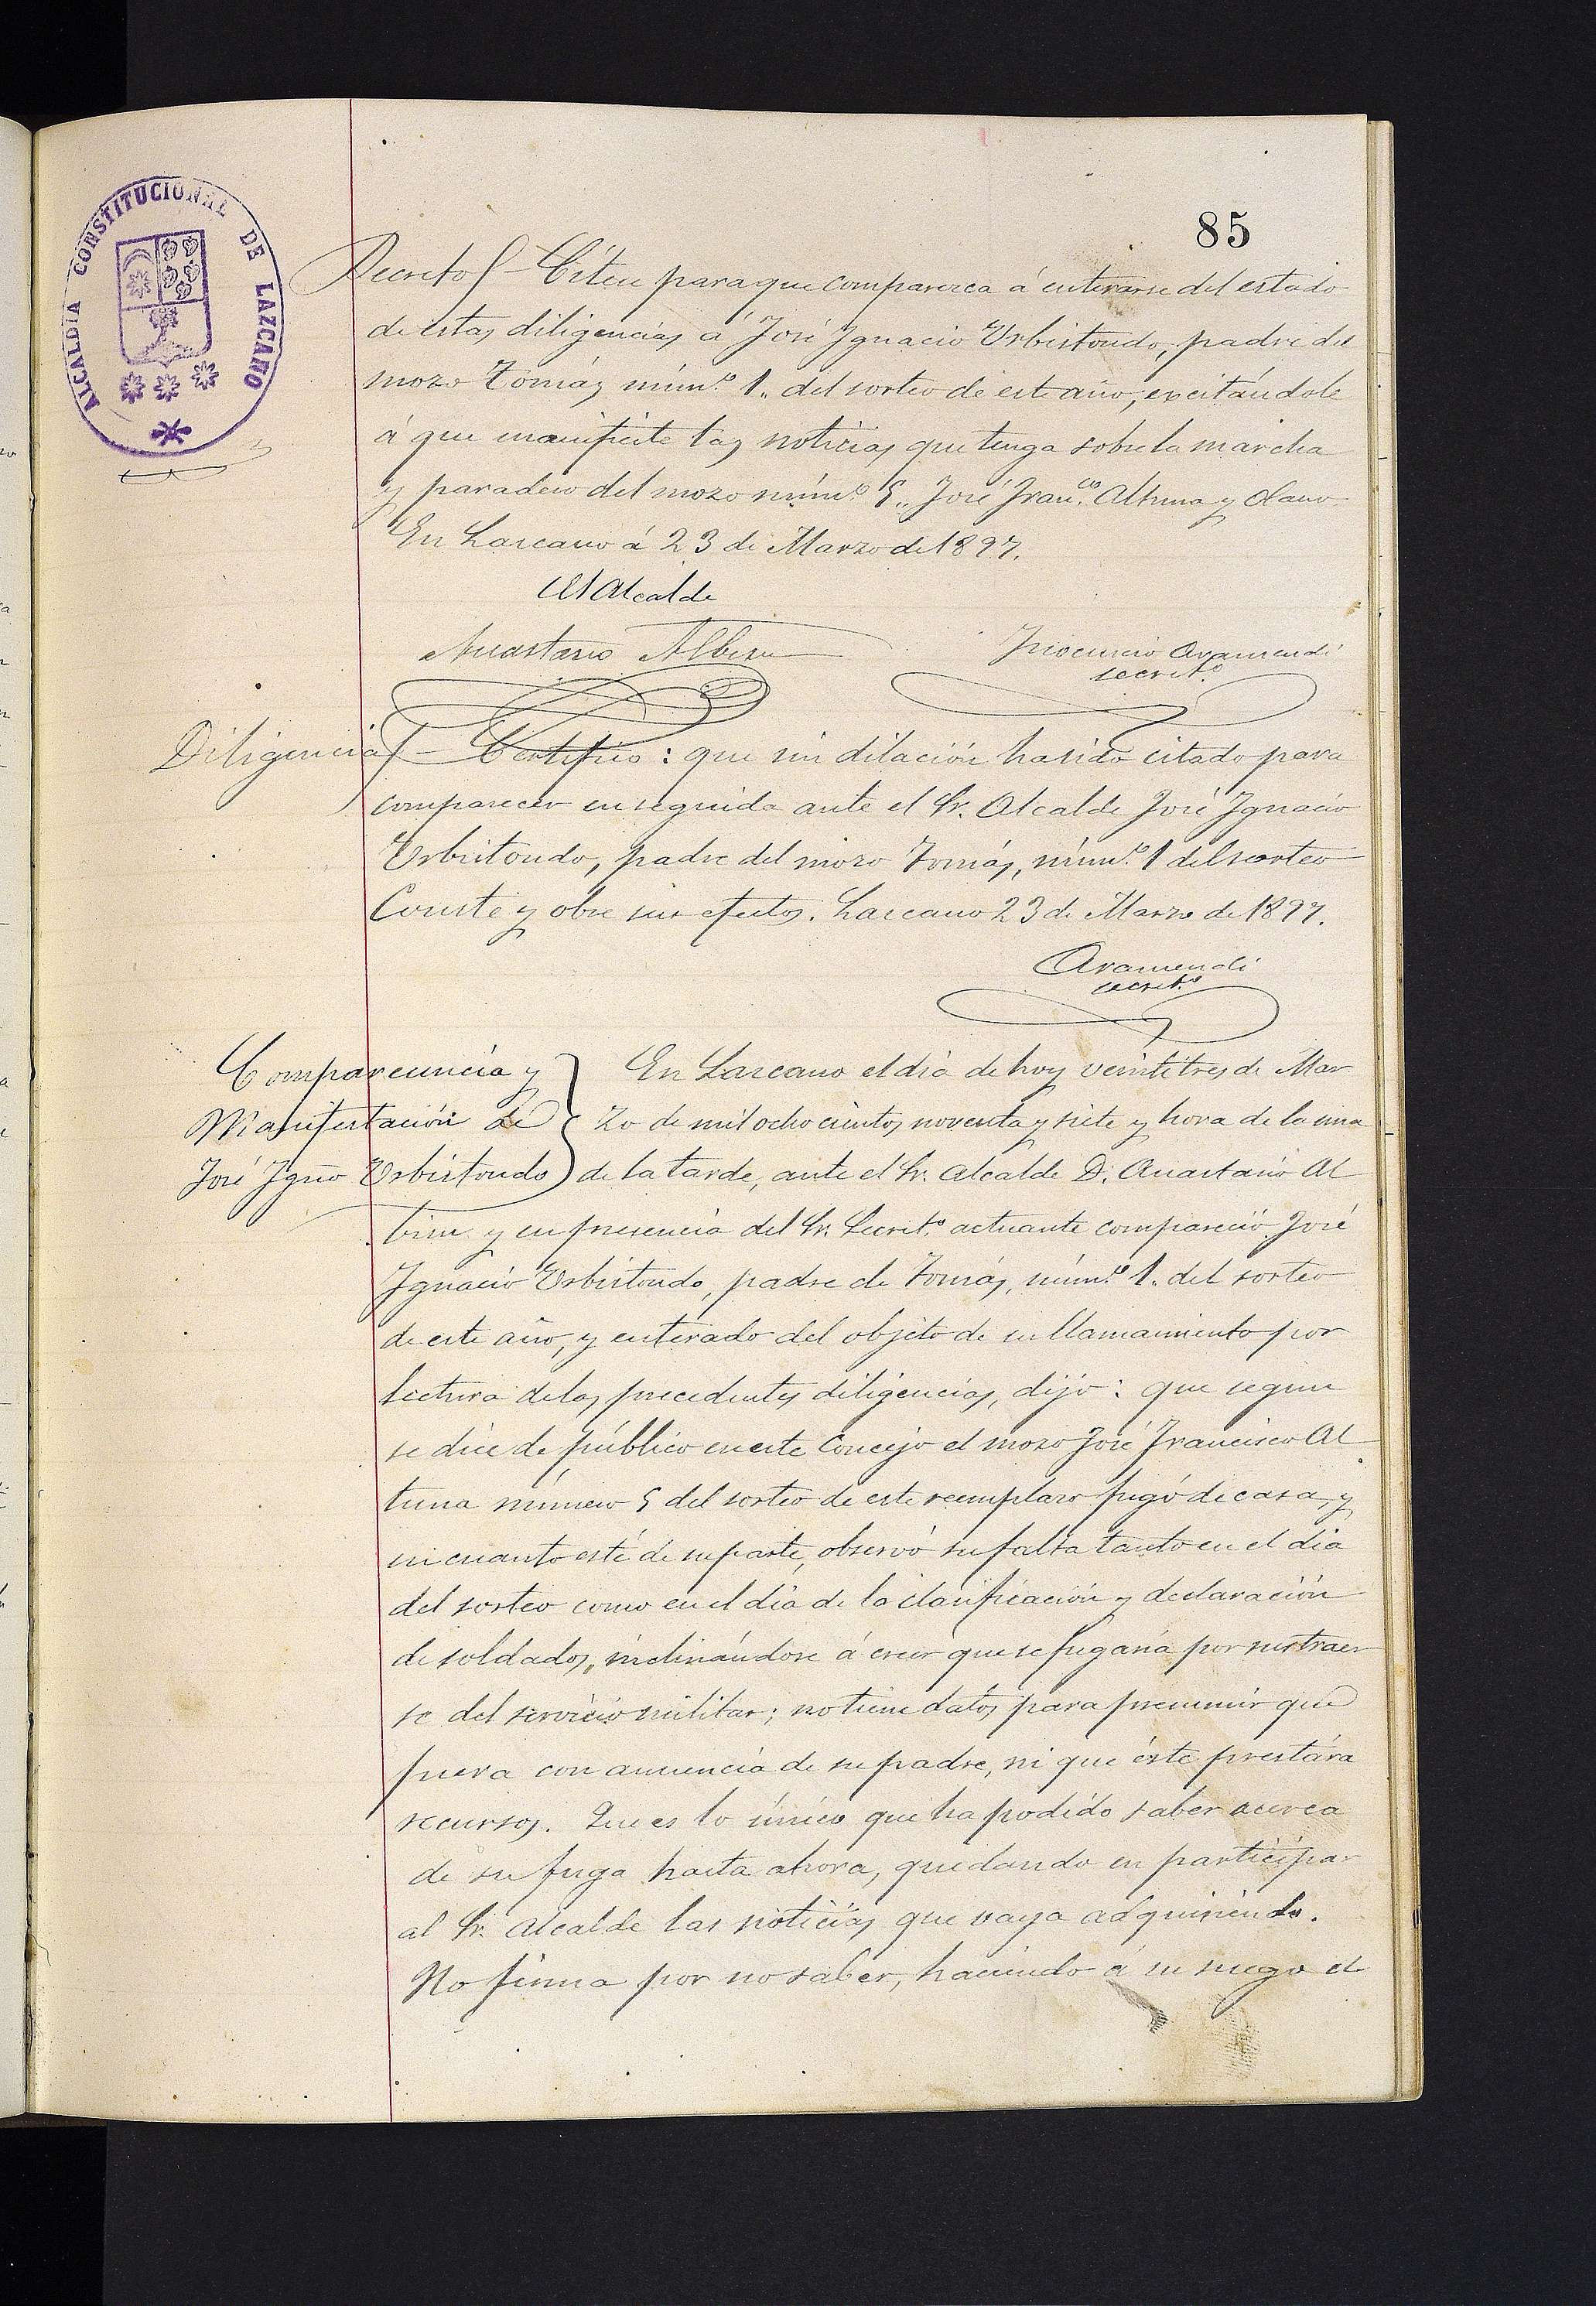 85
ALCALDIA CONSTITUCIONAL DE LAZCANO
Decreto - Citese para que comparezca á enterarse del estado
de estas diligencias á José Ignacio Urbistondo, padre del
mozo Tomás núm.º 1.. del sorteo de este año, excitándole
á que manifieste las noticias que tenga sobre la marcha
y paradero del mozo núm.º 5.. José Fran.co Altuna y Olano
En Lazcano á 23 de Marzo de 1897.
El Alcalde
Anastasio Albisu
Inocencio Aramendi
secret.º
Diligencia - Certifico: que sin dilación ha sido citado para
comparecer enseguida ante el Sr. Alcalde José Ignacio
Urbistondo, padre del mozo Tomás, núm.º 1 del sorteo
Conste y obre sus efectos. Lazcano 23 de Marzo de 1897.
Aramendi
secret.º
Comparecencia y
Manifestación de
José Igno Urbistondo
En Lazcano el dia de hoy veintitres de Mar
zo de mil ochocientos noventa y siete y hora de la una
de la tarde, ante el Sr. Alcalde D. Anastasio Al
bisu y en presencia del Sr. Secret.º actuante compareció José
Ignacio Urbistondo, padre de Tomás, núm.º 1. del sorteo
de este año, y enterado del objeto de su llamamiento por
lectura de las precedentes diligencias, dijo: que segun
se dice de público en este Concejo el mozo José Francisco Al
tuna número 5 del sorteo de este reemplazo fugó de casa, y
en cuanto esté de su parte, observó su falta tanto en el dia
del sorteo como en el dia de la clasificación y declaración
de soldados, inclinándose á creer que se fugaria por sustraer
se del servicio militar; no tiene datos para presumir que
fuera con anuencia de su padre, ni que éste prestára
recursos. Que es lo único que ha podido saber acerca
de su fuga hasta ahora, quedando en participar
al Sr. Alcalde las noticias que vaya adquiriendo.
No firma por no saber, haciendo á su ruego el